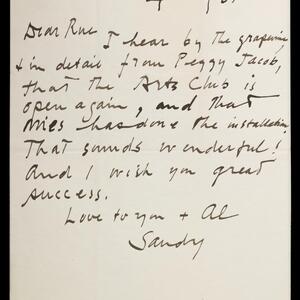 Dear Rue I hear by the grapevine
+ in detail from Peggy Jacob,
that the Arts Club is
open again, and that
Mies has done the installation
That sounds wonderful!
And I wish you great
success.
Love to you + Al
Sandy